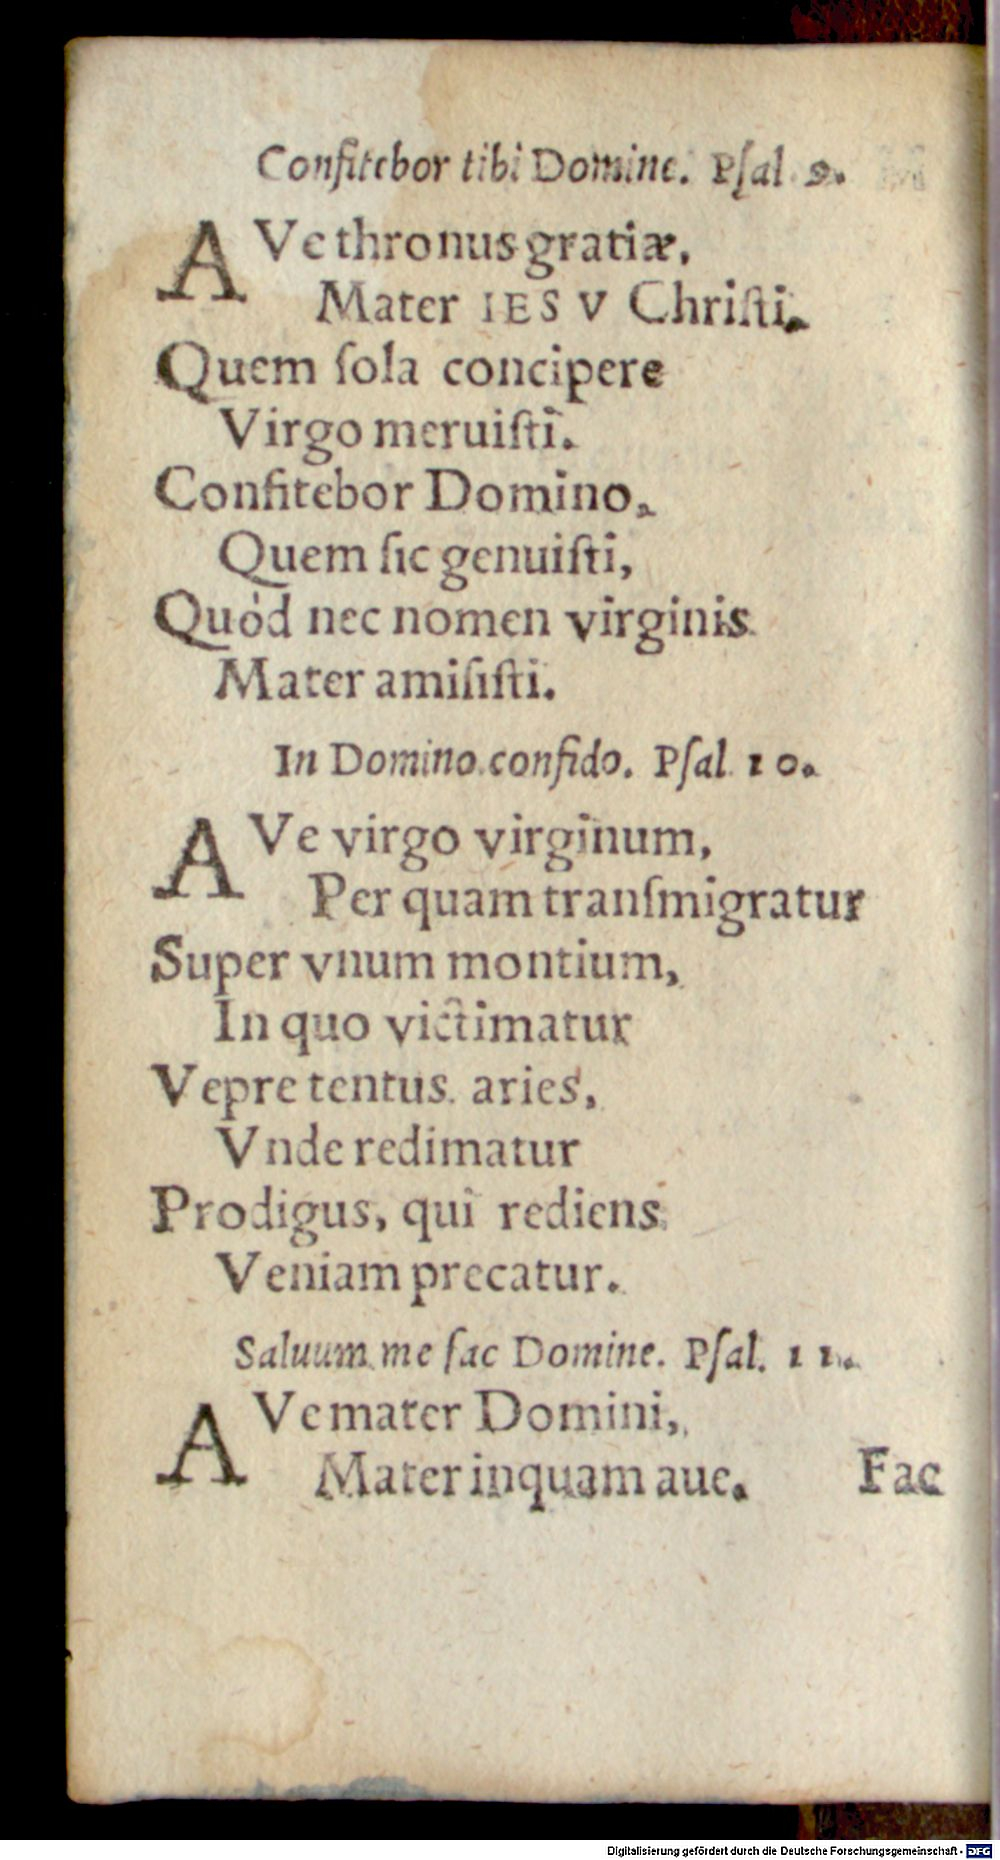 Confitebor tibi Domine. Pſal. 9.
AVe thronus gratiæ,
Mater IESV Chriſti.
Quem ſola concipere
Virgo meruiſti.
Confitebor Domino,
Quem ſic genuiſti,
Quòd nec nomen virginis
Mater amiſiſti.
In Domino confido. Pſal. 10.
AVe virgo virginum,
Per quam tranſmigratur
Super vnum montium,
In quo victimatur
Vepre tentus aries,
Vnde redimatur
Prodigus, qui rediens
Veniam precatur.
Saluum me fac Domine. Pſal. 11.
AVe mater Domini,
Mater inquam aue.
Fac
Digitalisierung gefördert durch die Deutsche Forschungsgemeinschaft - DFG